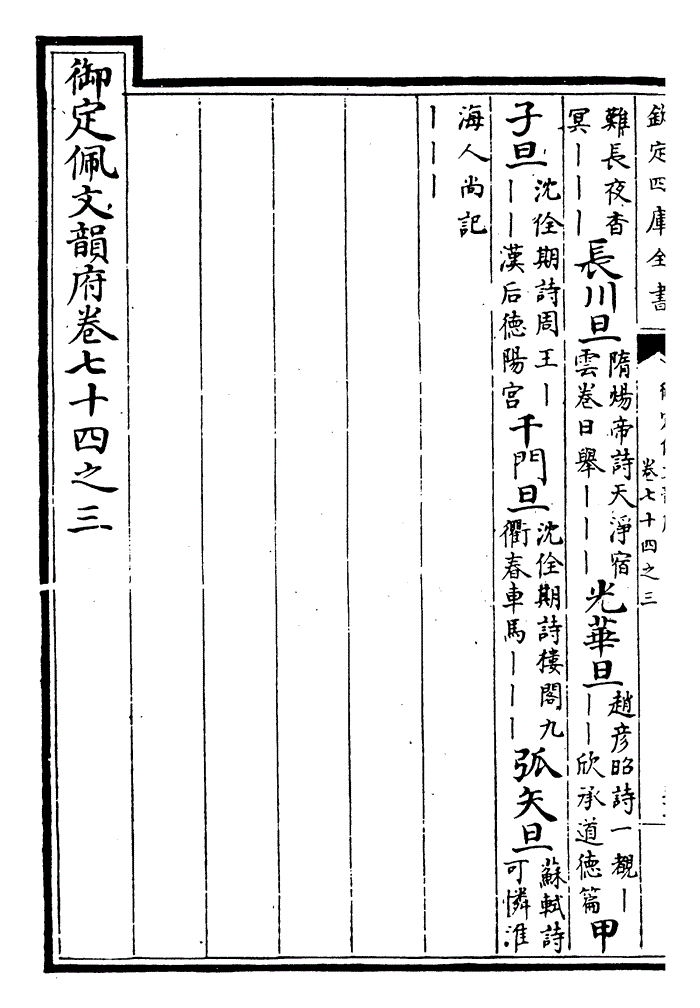 欽定四庫全書
卷七十四之三
難長夜杳
冥｜｜｜
長川旦
隋煬帝詩天淨宿
雲卷日舉｜｜｜
光華旦
趙彦昭詩一覩｜
｜｜欣承道徳篇
甲
子旦
沈佺期詩周王｜
｜｜漢后徳陽宮
千門旦
沈佺期詩樓閣九
衢春車馬｜｜｜
弧矢旦
蘇軾詩
可憐淮
海人尚記
｜｜｜
御定佩文韻府卷七十四之三